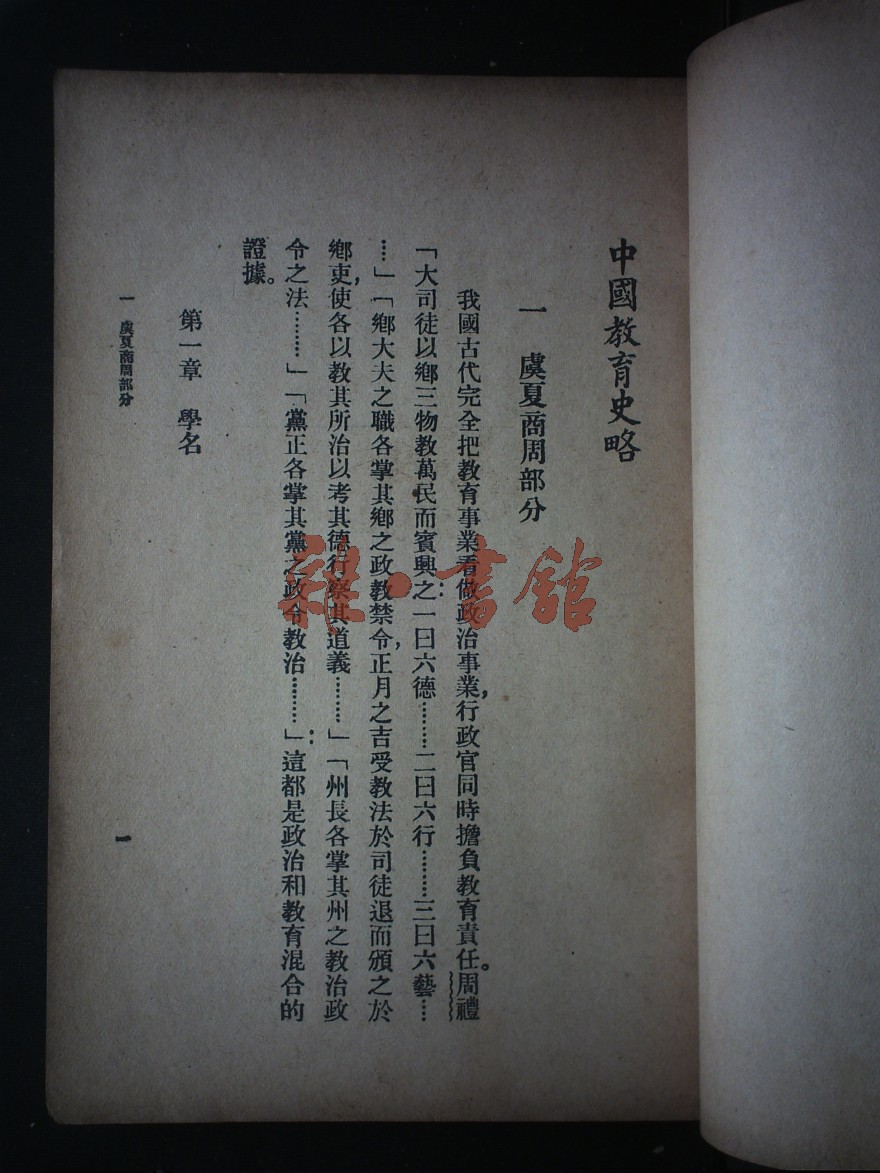 中國教育史略
一　虞夏商周部分
我國古代完全把教育事業看做政治事業，行政官同時擔負教育責任。周禮
「大司徒以鄉三物教萬民而賓興之：一曰六德………二曰六行………三曰六藝……
……」「鄉大夫之職各掌其鄉之政教禁令，正月之吉受教法於司徒退而頒之於
鄉吏，使各以教其所治以考其德行察其道義………」「州長各掌其州之教治政
令之法………」「黨正各掌其黨之政令教治………」這都是政治和教育混合的
證據。
第一章　學名
一　虞夏商周部分
一
雜·書館